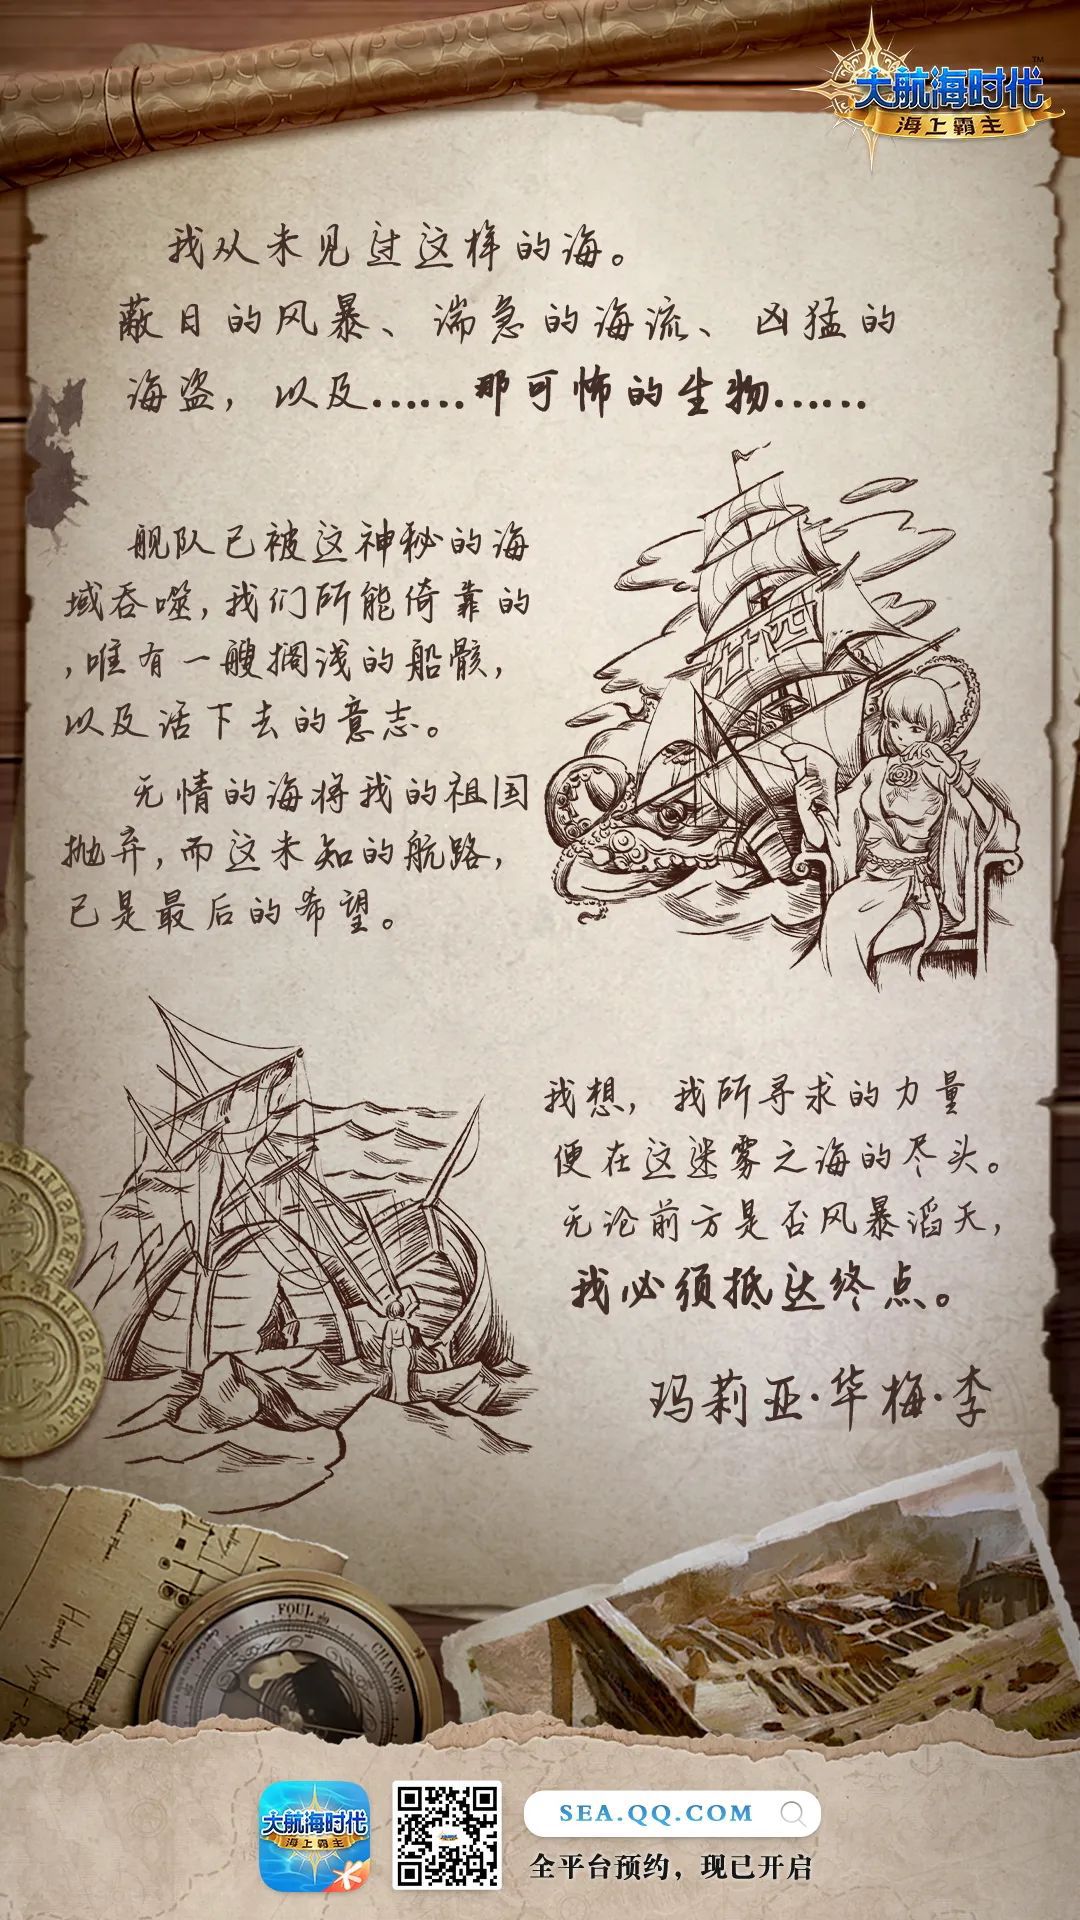 大航海时代™
海上霸主
我从未见过这样的海。
蔽日的风暴、湍急的海流、凶猛的
海盗，以及……那可怖的生物……
舰队已被这神秘的海
域吞噬，我们所能倚靠的
，唯有一艘搁浅的船骸，
以及活下去的意志。
无情的海将我的祖国
抛弃，而这未知的航路，
已是最后的希望。
我想，我所寻求的力量
便在这迷雾之海的尽头。
无论前方是否风暴滔天，
我必须抵达终点。
玛莉亚·华梅·李
FOUL
CHANGE
大航海时代
海上霸主
SEA.QQ.COM
全平台预约，现已开启